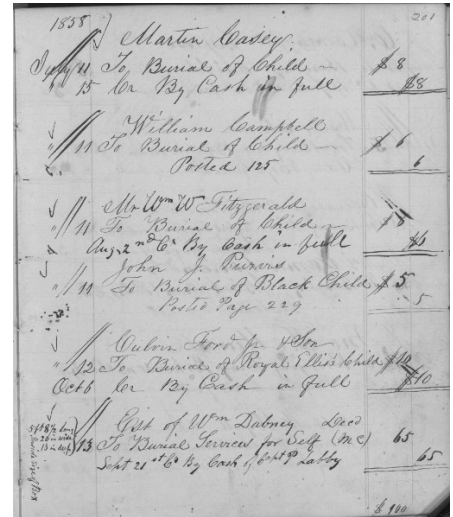 201
1858
Martin Casey
July 11 To Burial of Child $ 8
" 15 Cr By Cash in full $8
William Campbell
" 11 To Burial of Child $ 6
Posted 125 6
Mr Wm W Fitzgerald
" 11 To Burial of Child $ 8
Aug 2nd Cr By Cash in full
John J.
" 11 To Burial of Black Child $ 5
Posted Page 229 5
Calvin Ford jr & Son
" 12 To Burial of Royal Ellis's Child $10
Oct 6 Cr By Cash in full $10
Est of Wm Dabney Decd
" 13 To Burial Services for Self (MC) 65
Sept 21st Cr By Cash of Capt P Labby 65
5 ft 8 1/2 long
20 in wide
13 in deep
$ 100